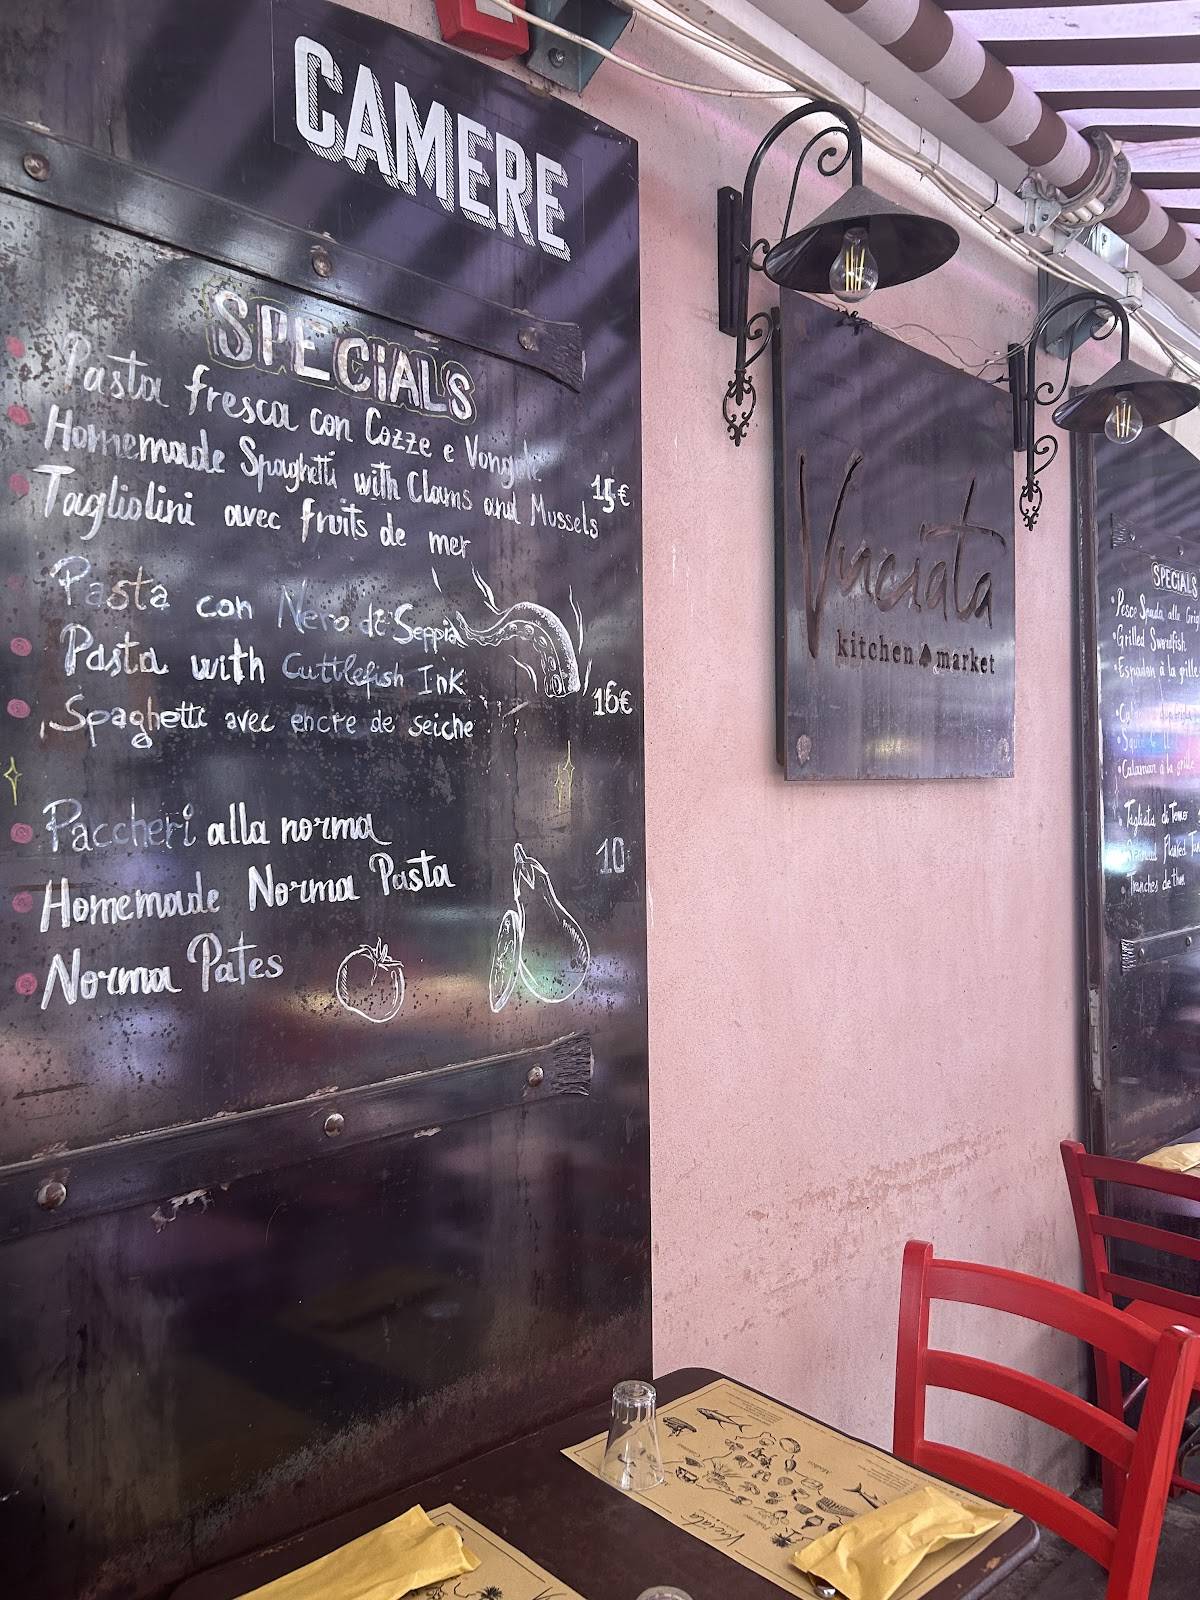 CAMERE
SPECIALS
Pasta fresca con Cozze e Vongole
Homemade Spaghetti with Clams and Mussels
15€
Tagliolini avec fruits de mer
Pasta con Nero di Seppia
Pasta with Cuttlefish Ink
16€
Spaghetti avec encre de seiche
Paccheri alla norma
10
Homemade Norma Pasta
Norma Pates
Vuciata
kitchen market
SPECIALS
Pesce Spada alla
Grilled Swordfish
Espadon à la grille
Calamar a la grille
Tagliata di Tonno
Tranches de thon
Vuciata